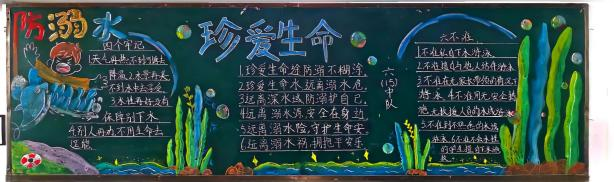 防溺水
四个牢记
1天气再热不到
2降温之水景再美
不到水中去享受
3水性再好没有
保障别下水
4别人再劝不用生命去
逞能
珍爱生命
1.珍爱生命终防溺不糊涂,
2.珍爱生命水,远离溺水危
3.远离深水域防溺护自己,
4.远离溺水源,安全在身边
5.远离溺水险,守护生命安
6.远离溺水祸,拥抱平安乐
六(5)中队
六不准
1.不准私自下水游泳
2.不准擅自与他人结伴游泳
3.不准在无家长带领的情况下
游泳 4.不准在无安全设
施、无救援人员的水域游泳
5.不准到不
游泳 6.不准不会水性
的学生擅自下水施
救